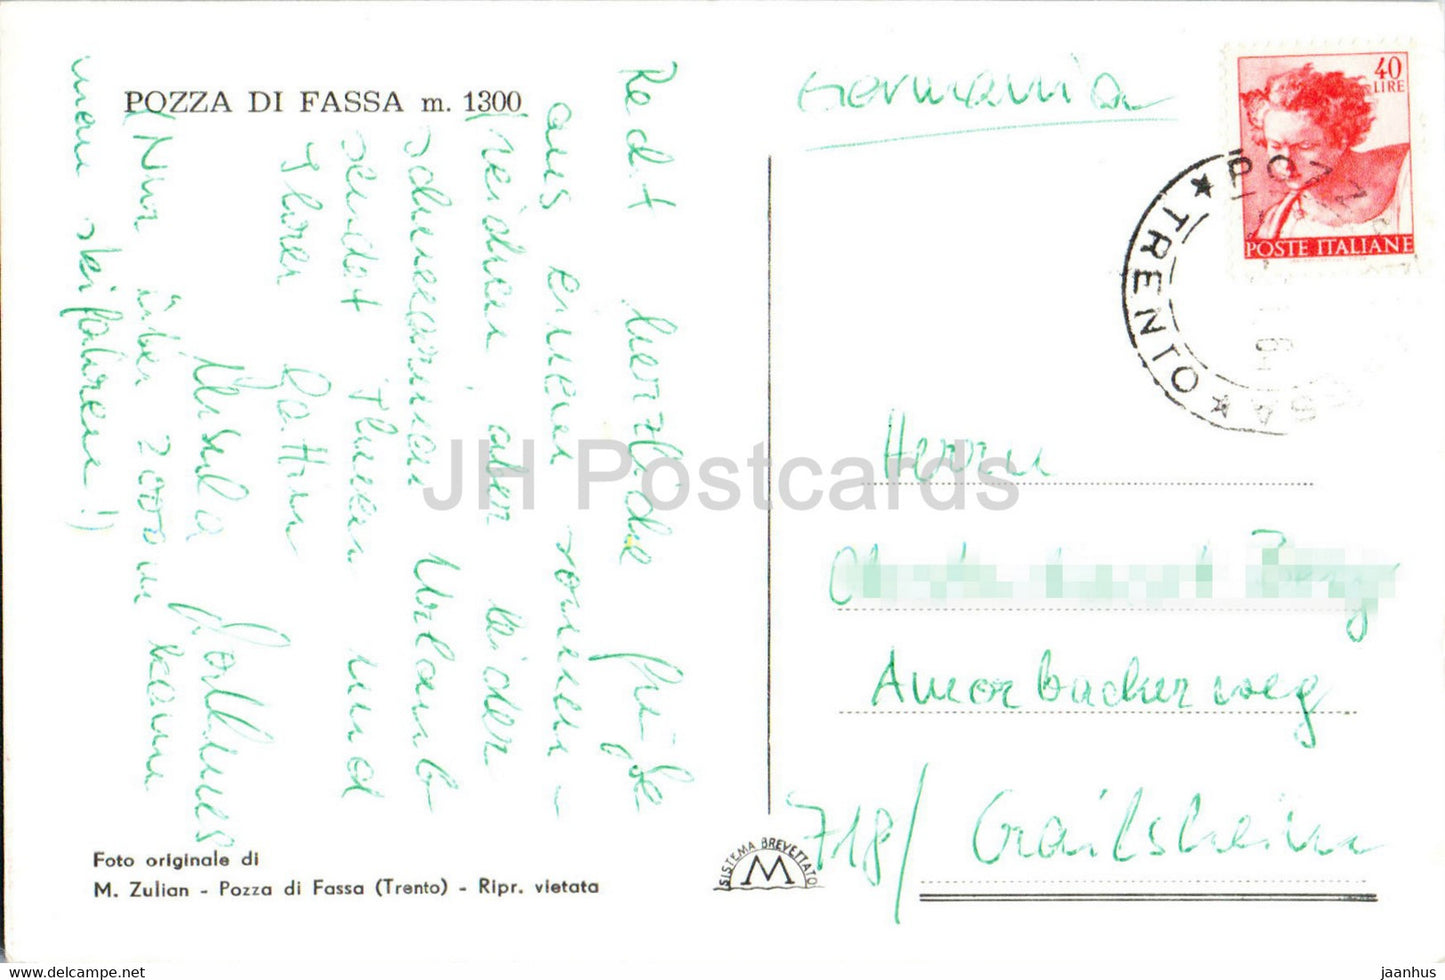 POZZA DI FASSA m. 1300
Recht herzliche Grüße
aus einem sonnen-
reichen aber leider
schneearmen Urlaub
sendet Ihnen und
Ihrer Gattin
Ursula
(Nur über 2000 m kann
man skifahren!)
Foto originale di
M. Zulian - Pozza di Fassa (Trento) - Ripr. vietata
SISTEMA BREVETTATO
M
Germania
40
LIRE
POSTE ITALIANE
POZZA
TRENTO
Herrn
Amorbacherweg
718/ Crailsheim
JH Postcards
https://jhpostcards.com
jaanhus